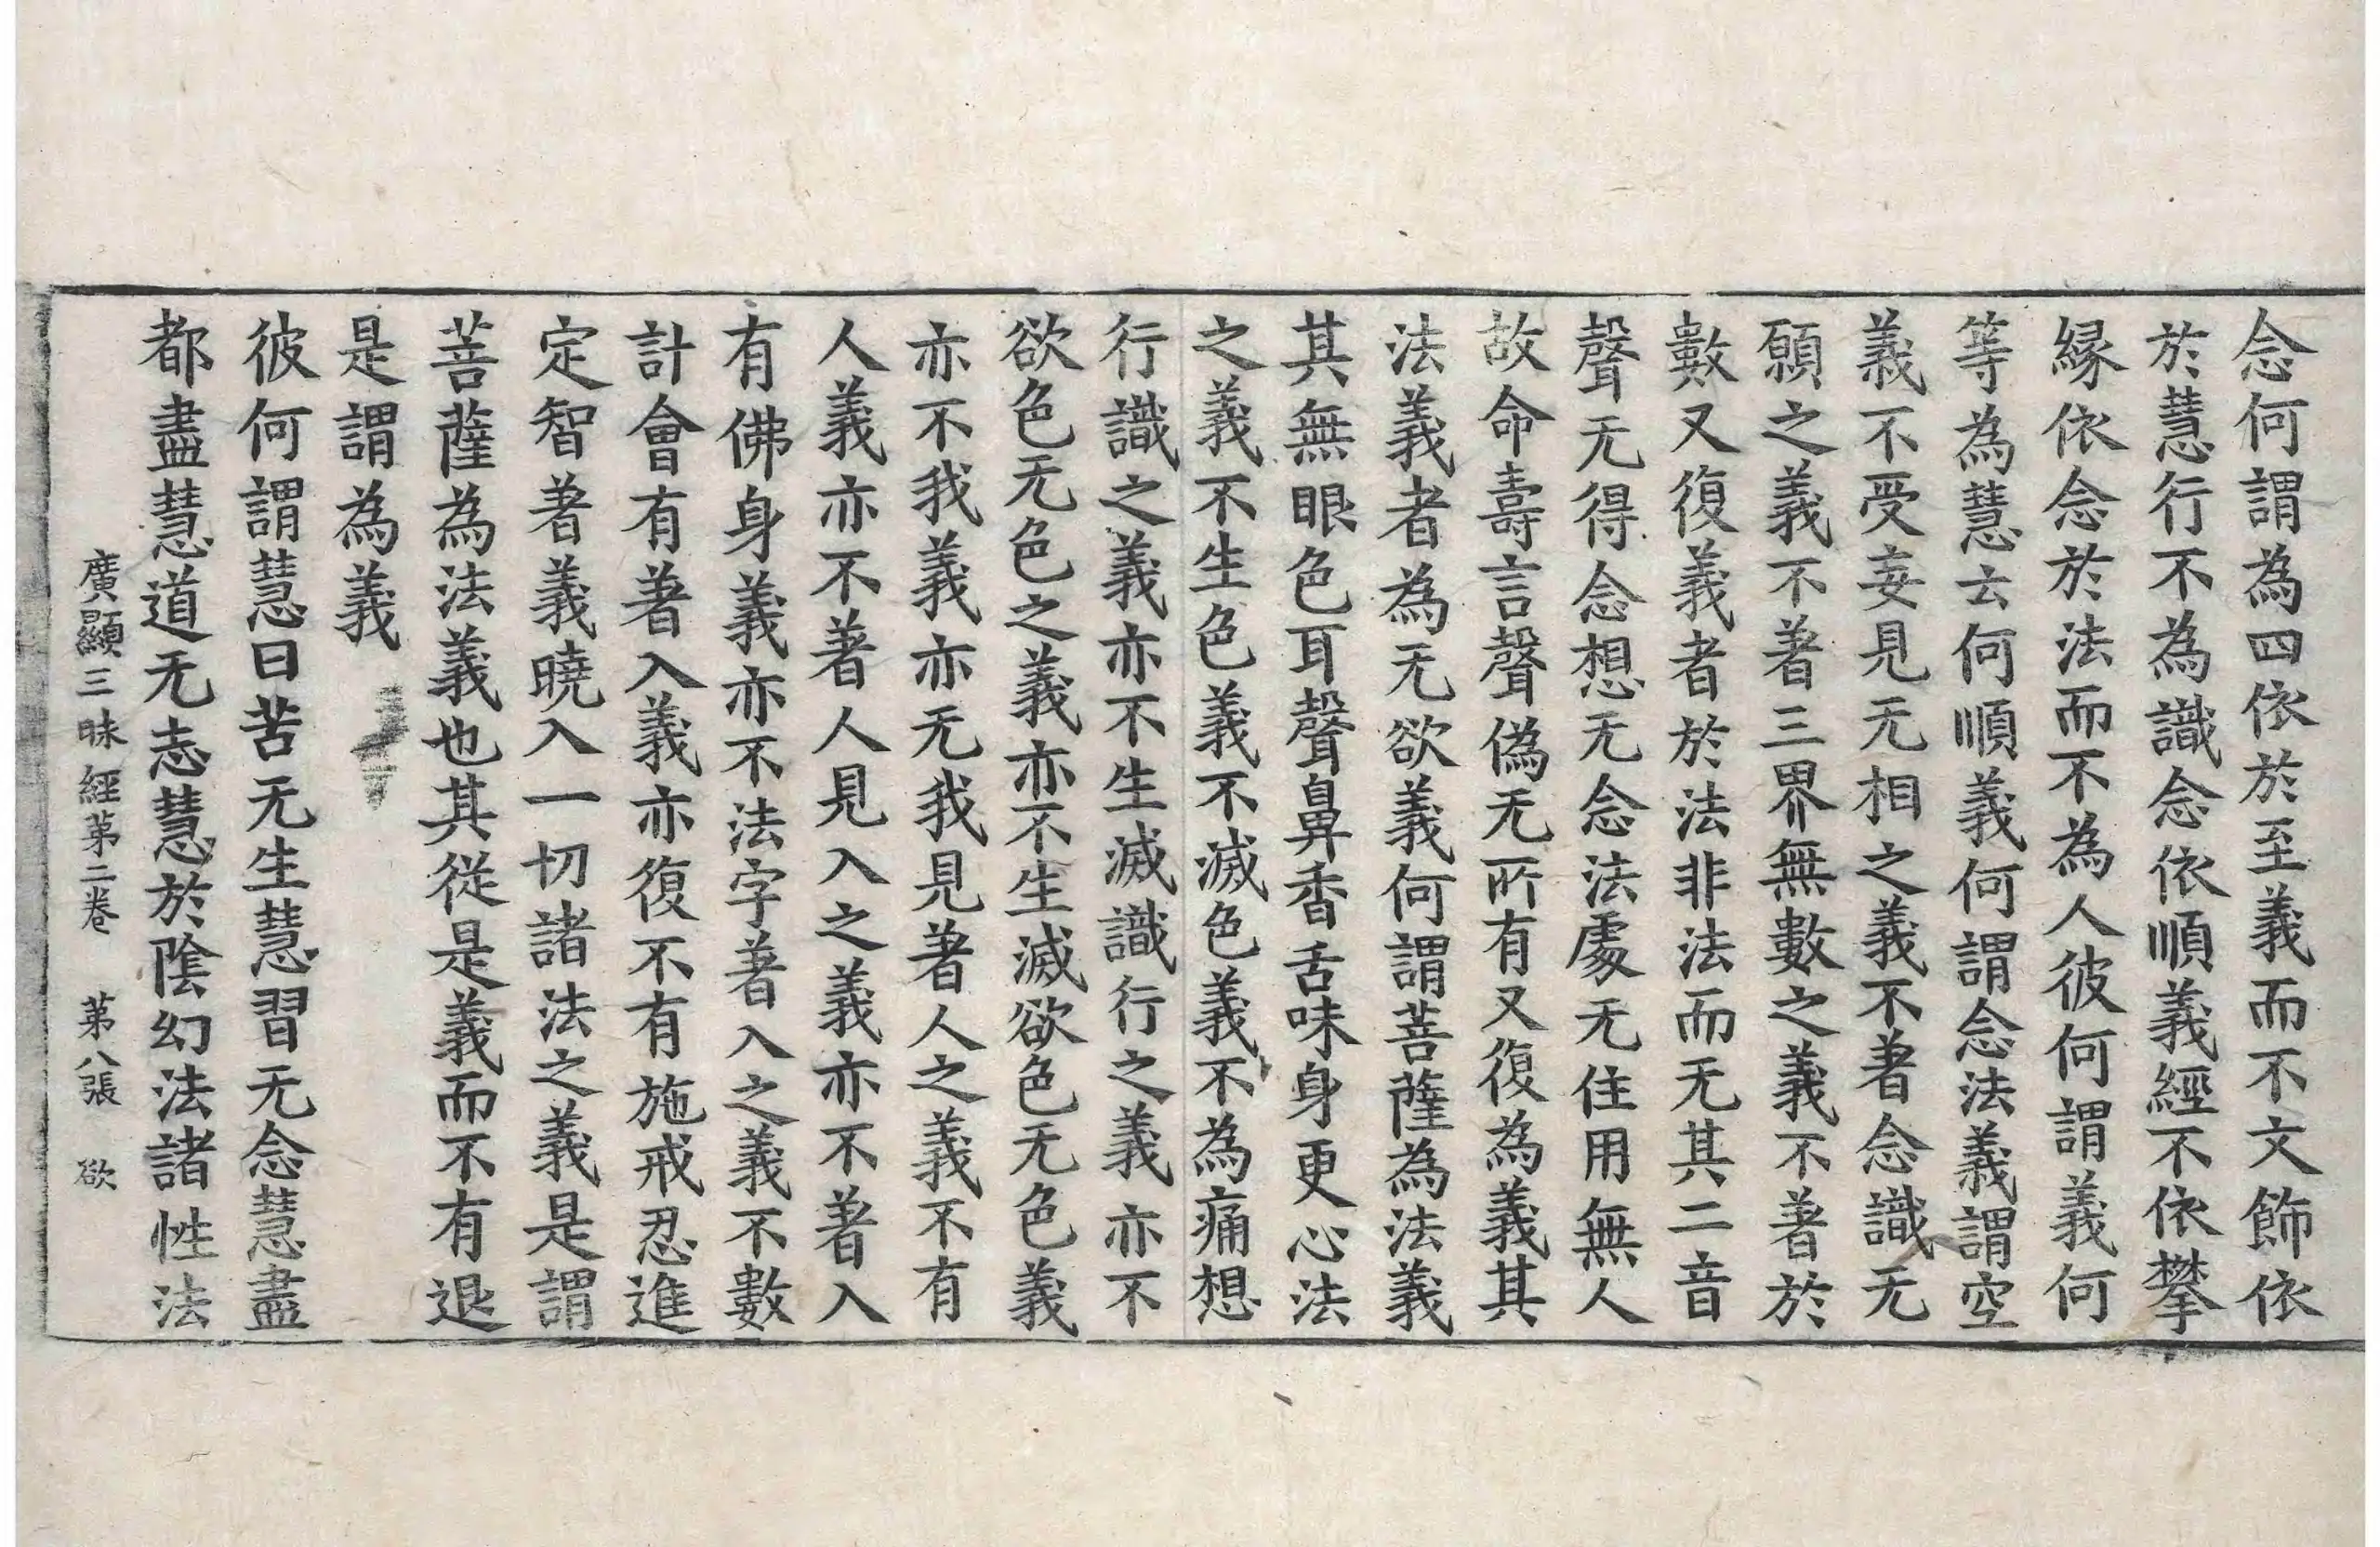 念何謂為四依於至義而不文飾依
於慧行不為識念依順義經不依攀
縁依念於法而不為人彼何謂義何
等為慧云何順義何謂念法義謂空
義不受妄見无相之義不著念識无
願之義不著三界無數之義不著於
數又復義者於法非法而无其二音
聲无得念想无念法處无住用無人
故命壽言聲偽无所有又復為義其
法義者為无欲義何謂菩薩為法義
其無眼色耳聲鼻香舌味身更心法
之義不生色義不滅色義不為痛想
行識之義亦不生滅識行之義亦不
欲色无色之義亦不生滅欲色无色義
亦不我義亦无我見著人之義不有
人義亦不著人見入之義亦不著入
有佛身義亦不法字著入之義不數
計會有著入義亦復不有施戒忍進
定智著義曉入一切諸法之義是謂
菩薩為法義也其從是義而不有退
是謂為義
彼何謂慧曰苦无生慧習无念慧盡
都盡慧道无志慧於陰幻法諸性法
廣顯三昧經第二卷 第八張 欲